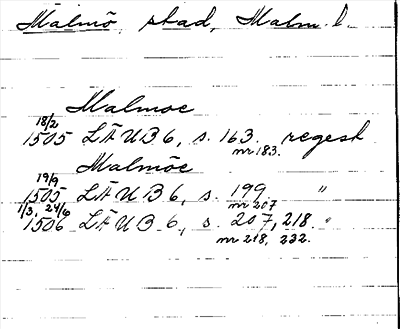 Malmö, stad, Malm. l.
Malmoe
18/2
1505 LÄUB 6, s. 163. regest
nr 183.
Malmöe
19/9
1505 LÄUB 6, s. 199 "
nr 207
1/3, 24/6
1506 LÄUB 6, s. 207, 218. "
nr 218, 232.